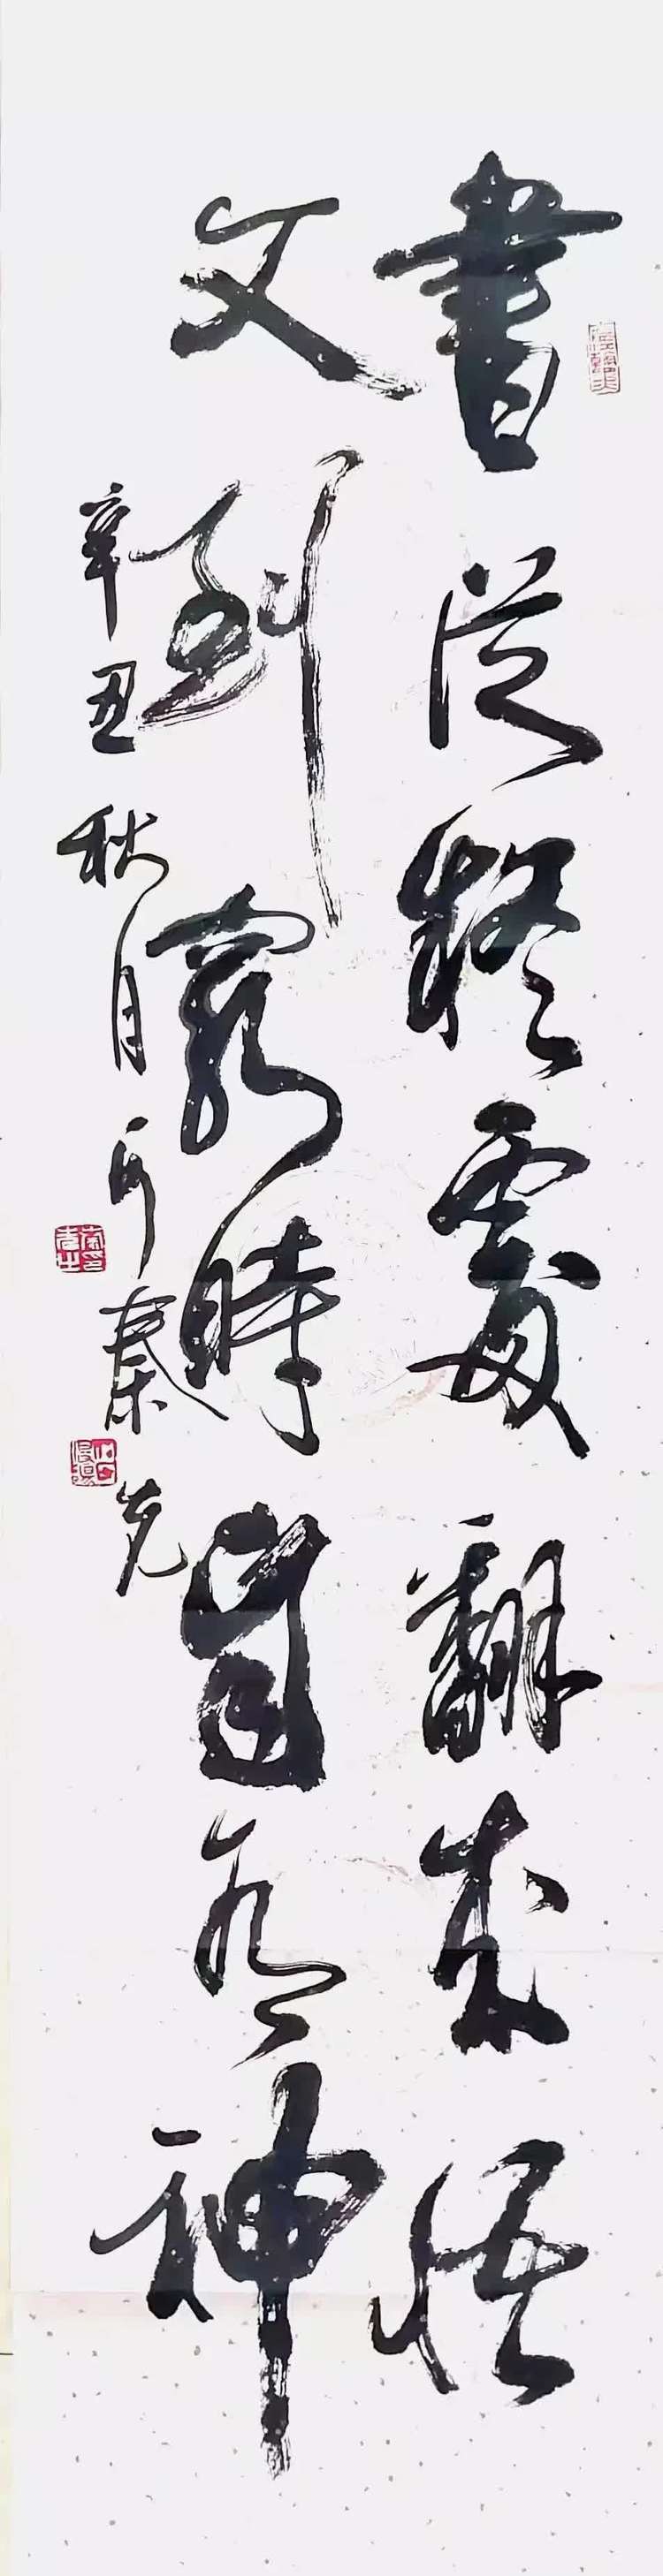 書從疑處翻成悟
文到窮時自有神
辛丑秋月秦